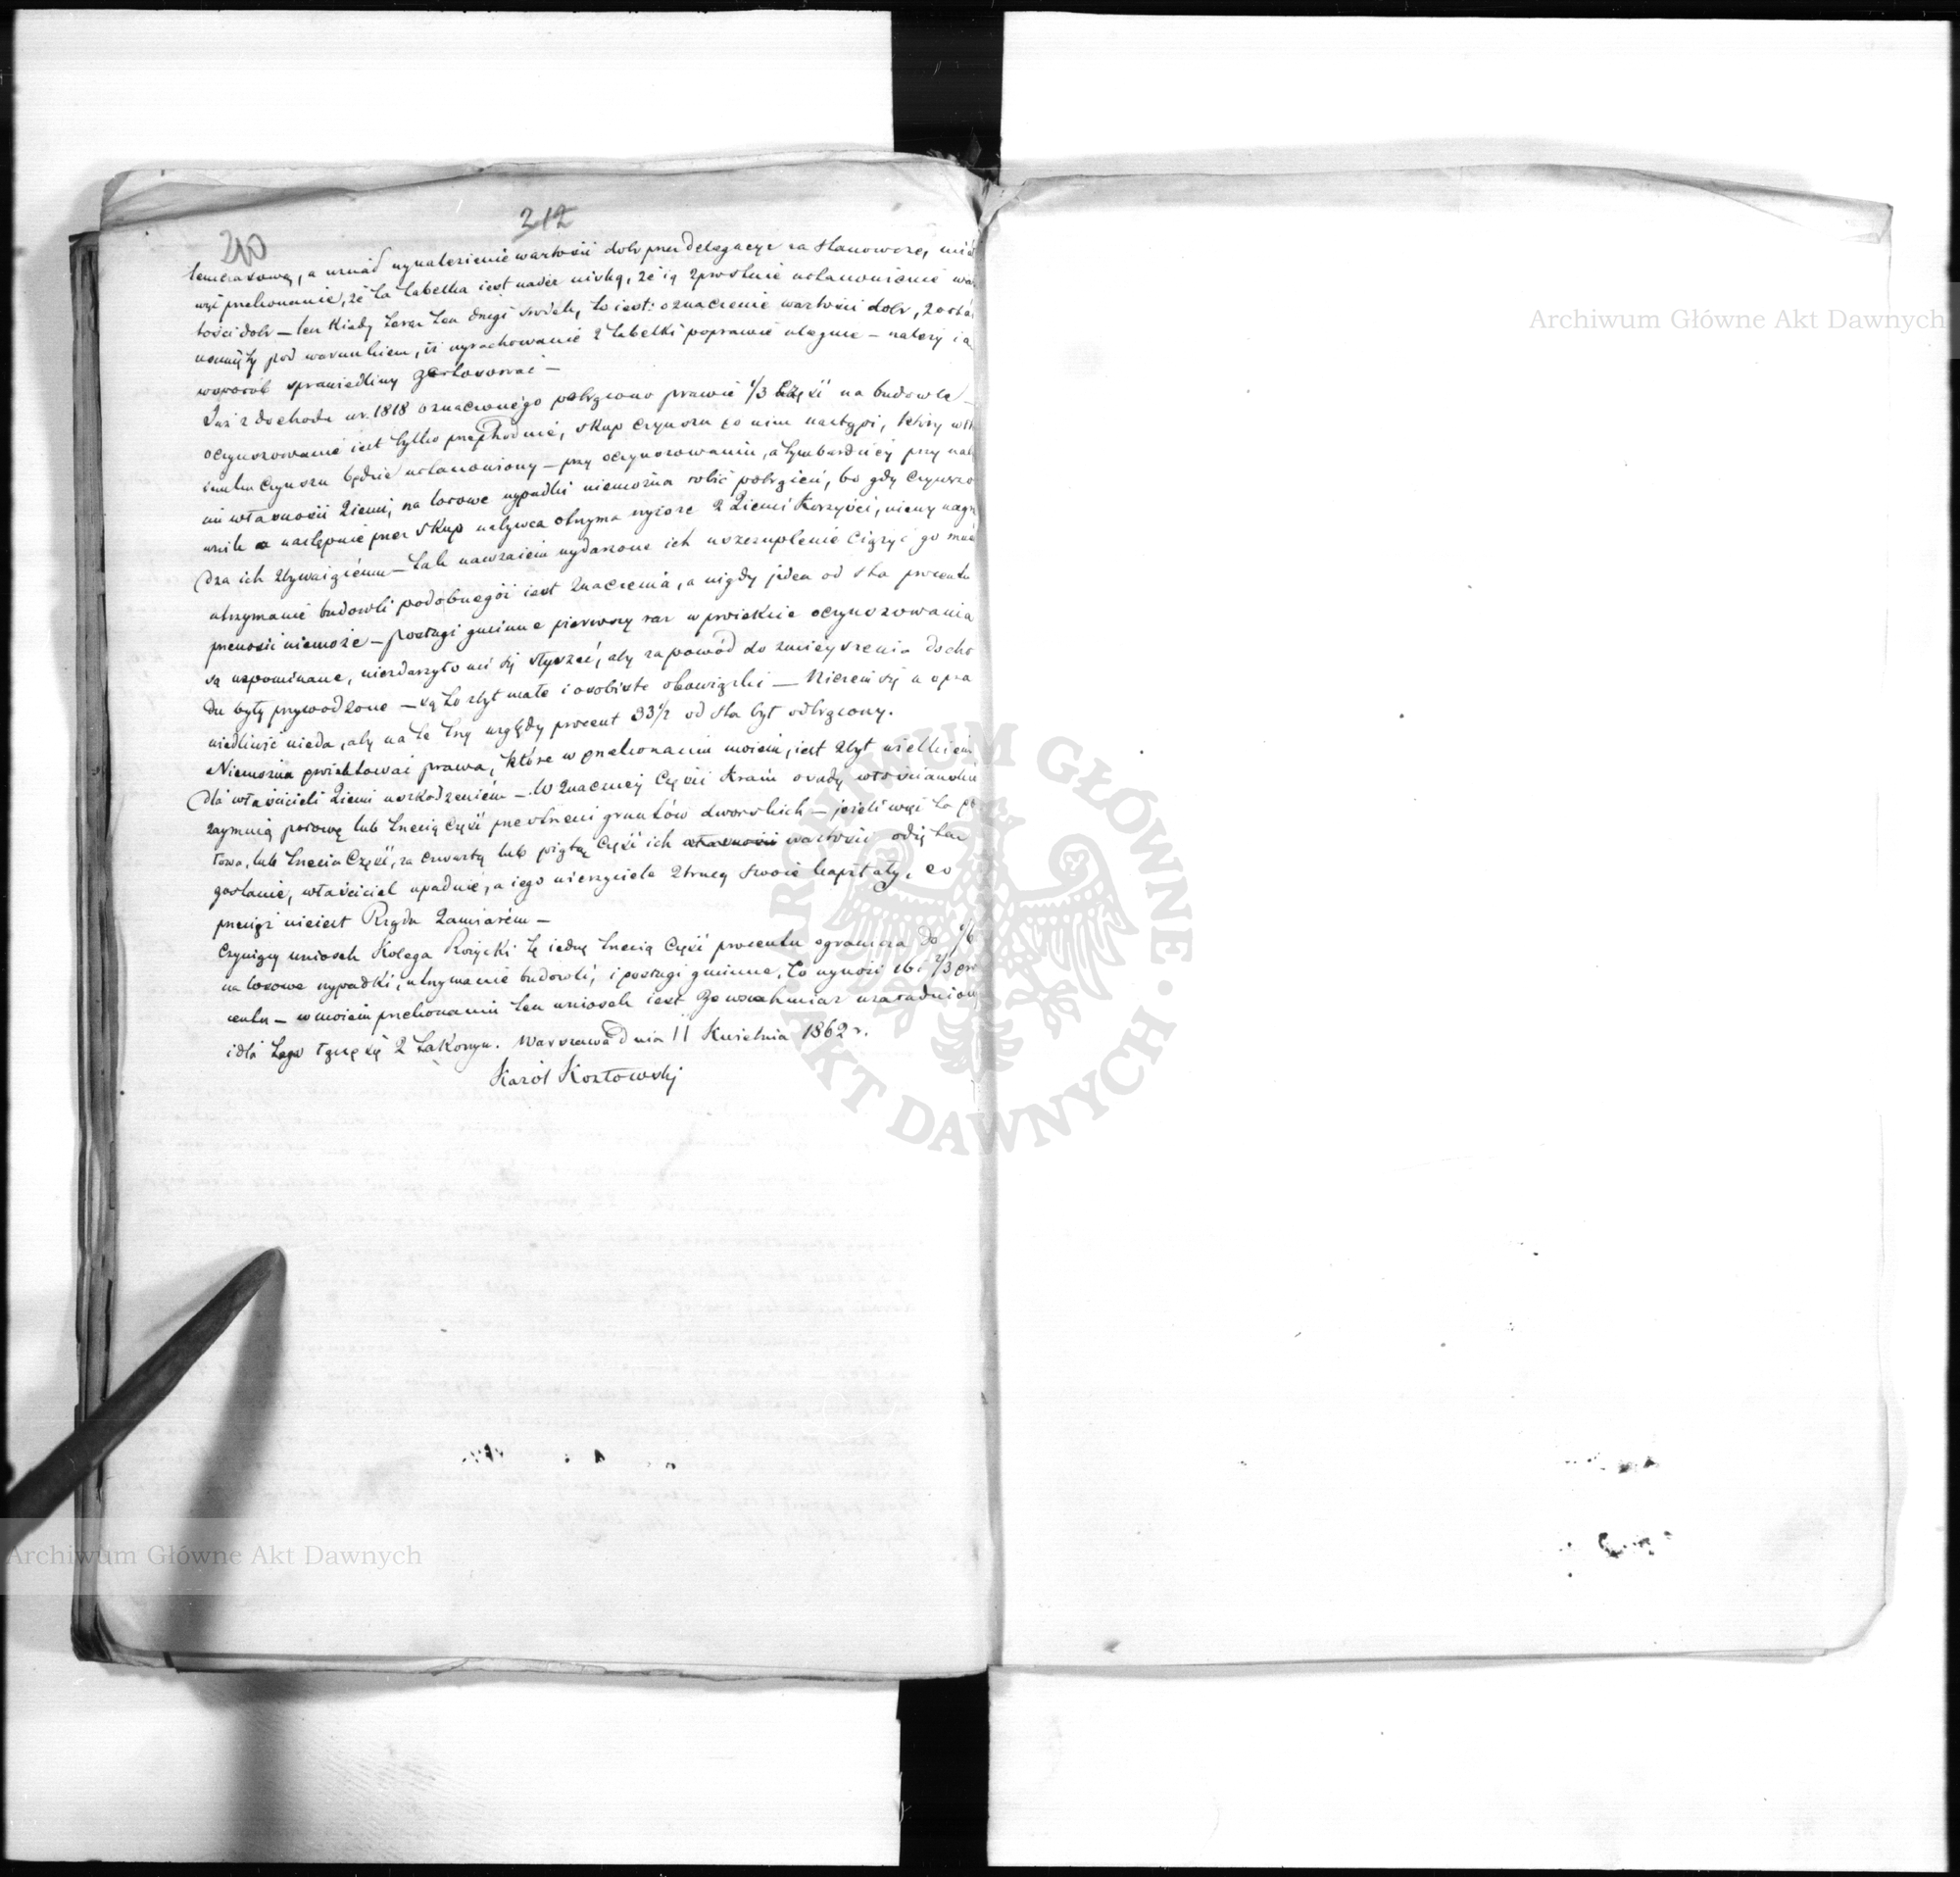 212
210
temczasową, a uznać wynalezienie wartości dóbr przez Delegacye za stanowcze, mia
więc przekonanie, że ta tabella iest nader niską, że ią sprostuie ustanowienie war
tości dóbr — ten kiedy teraz ten drugi środek, to iest: oznaczenie wartości dóbr, został
usunięty pod warunkiem, iż wyrachowanie z tabelki poprawie ulegnie — należy ią
wsposób sprawiedliwy zastosować —
Już z dochodu w r. 1818 oznaczonego potrącono prawie 1/3 Część na budowle —
oczynszowanie iest tylko przechodnie, skup czynszu po nim nastąpi, który w st
sunku Czynszu będzie ustanowiony — przy oczynszowaniu, a tymbardziéj przy naby
ciu własności Ziemi, na losowe wypadki niemożna robić potrąceń, bo gdy Czynszo
wnik a następnie przez skup nabywca otrzyma wyższe z Ziemi Korzyści, nie wynagra
dza ich zbywaiącému — tak nawzaiem wydarzone ich uszczuplenie Ciążyć go może
utrzymanie budowli podobnegóż iest znaczenia, a nigdy jeden od sta procentu
przenosić niemoże — posługi gminne pierwszy raz w proiekcie oczynszowania
są wspominane, niezdarzyło mi się słyszeć, aby za powód do zmnieyszenia docho
du były przywodzone — są to zbyt małe i osobiste obowiązki — Mieści się w spra
wiedliwość nieda, aby na te trzy względy procent 33 1/2 od sta był odtrącony.
Niemożna proiektować prawa, które w przekonaniu moiém, iest zbyt wielkiém
dla właścicieli Ziemi uszkodzeniém — W znacznéy Części Kraiu osady włościańskie
zaymuią połowę lub trzecią Część przestrzeni gruntów dworskich — jeżeli więc ta po
łowa, lub trzecia Część, za czwartą lub piątą Część ich własności wartości odięta
zostanie, właściciel upadnie, a iego wierzyciele ztracą swoie kapitały, co
przecięż nieiest Rządu Zamiarém —
Czyniący wniosek Kolega Różycki tę iedną trzecią Część procentu ogranicza do 1/6
na losowe wypadki, utrzymanie budowli, i posługi gminne, to wynosi 16 2/3 pro
centu — w moiém przekonaniu ten wniosek iest ze wszechmiar uzasadniony
i dla tego łączę się z takowym. Warszawa dnia 11 Kwietnia 1862 r.
Karól Kozłowski
Archiwum Główne Akt Dawnych
ARCHIWUM GŁÓWNE AKT DAWNYCH
Archiwum Główne Akt Dawnych